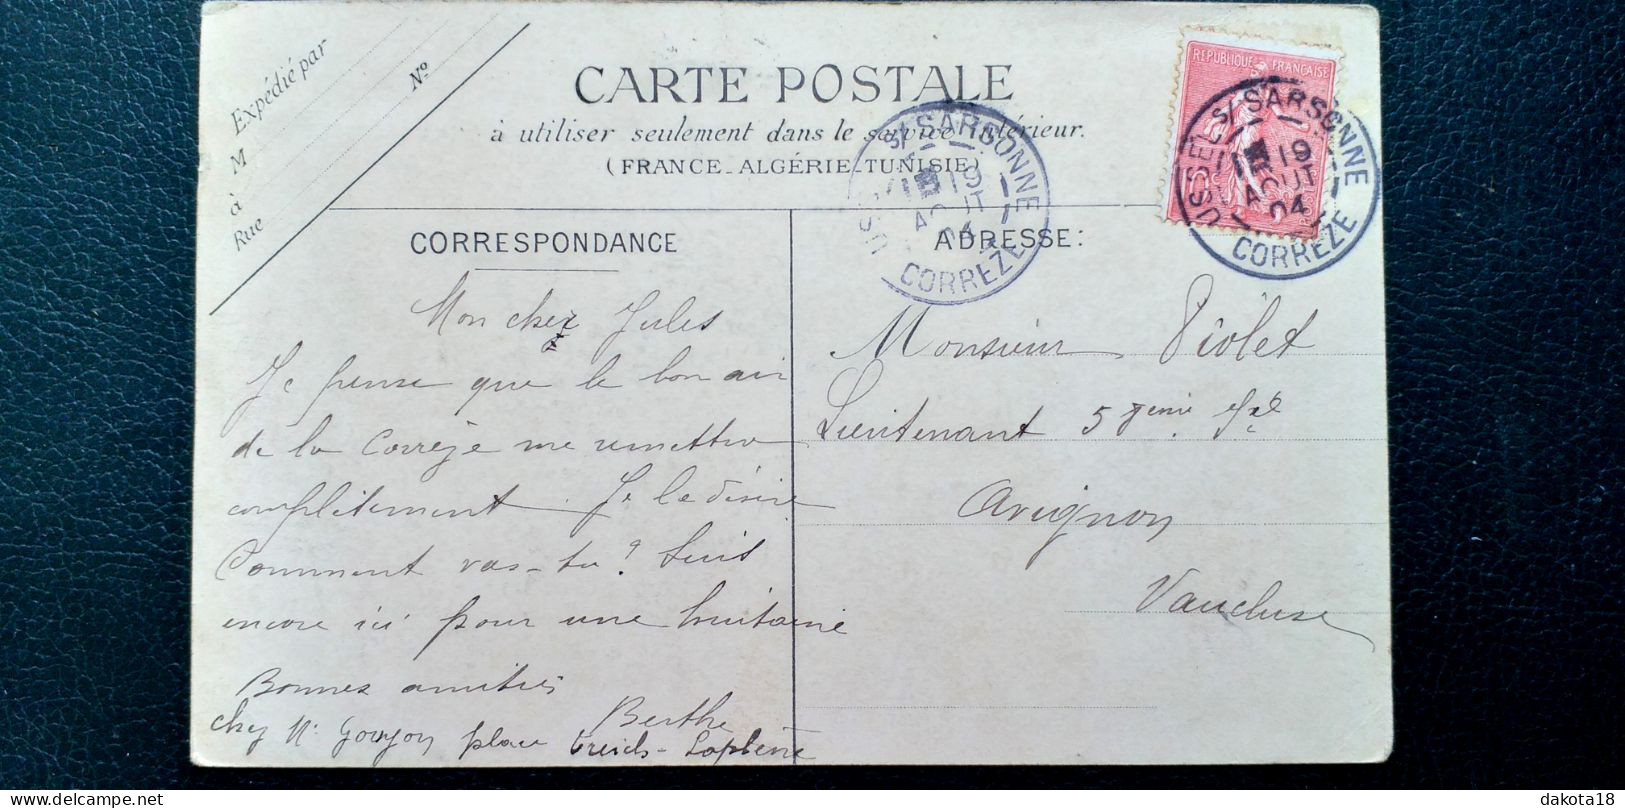 Expédié par
M
à
Rue
N°
CARTE POSTALE
à utiliser seulement dans le service intérieur.
(FRANCE_ALGÉRIE_TUNISIE)
RÉPUBLIQUE FRANÇAISE
USSEL S/ SARSONNE
19
AOUT
04
CORREZE
USSEL S/ SARSONNE
19
AOUT
04
CORREZE
CORRESPONDANCE
Mon cher Jules
Je pense que le bon air
de la Corrèze me remettra
complètement. Je le désire
Comment vas-tu? Suis
encore ici pour une huitaine
Bonnes amitiés
Berthe
chez Mr Goujon place
ADRESSE:
Monsieur Violet
Lieutenant 58eme
Avignon
Vaucluse
delcampe.net
dakota18